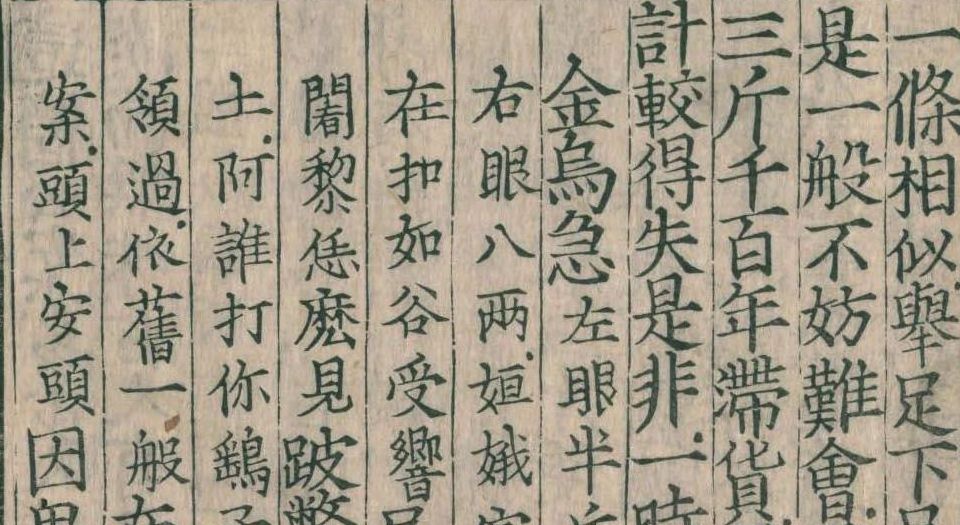 一條相似舉足下
是一般不妨難會
三斤千百年滯貨
計較得失是非一時
金烏急左眼半斤
右眼八两姮娥
在扣如谷受響
闍黎恁麽見跛
土阿誰打你鷂子
領過依舊一般
案頭上安頭因